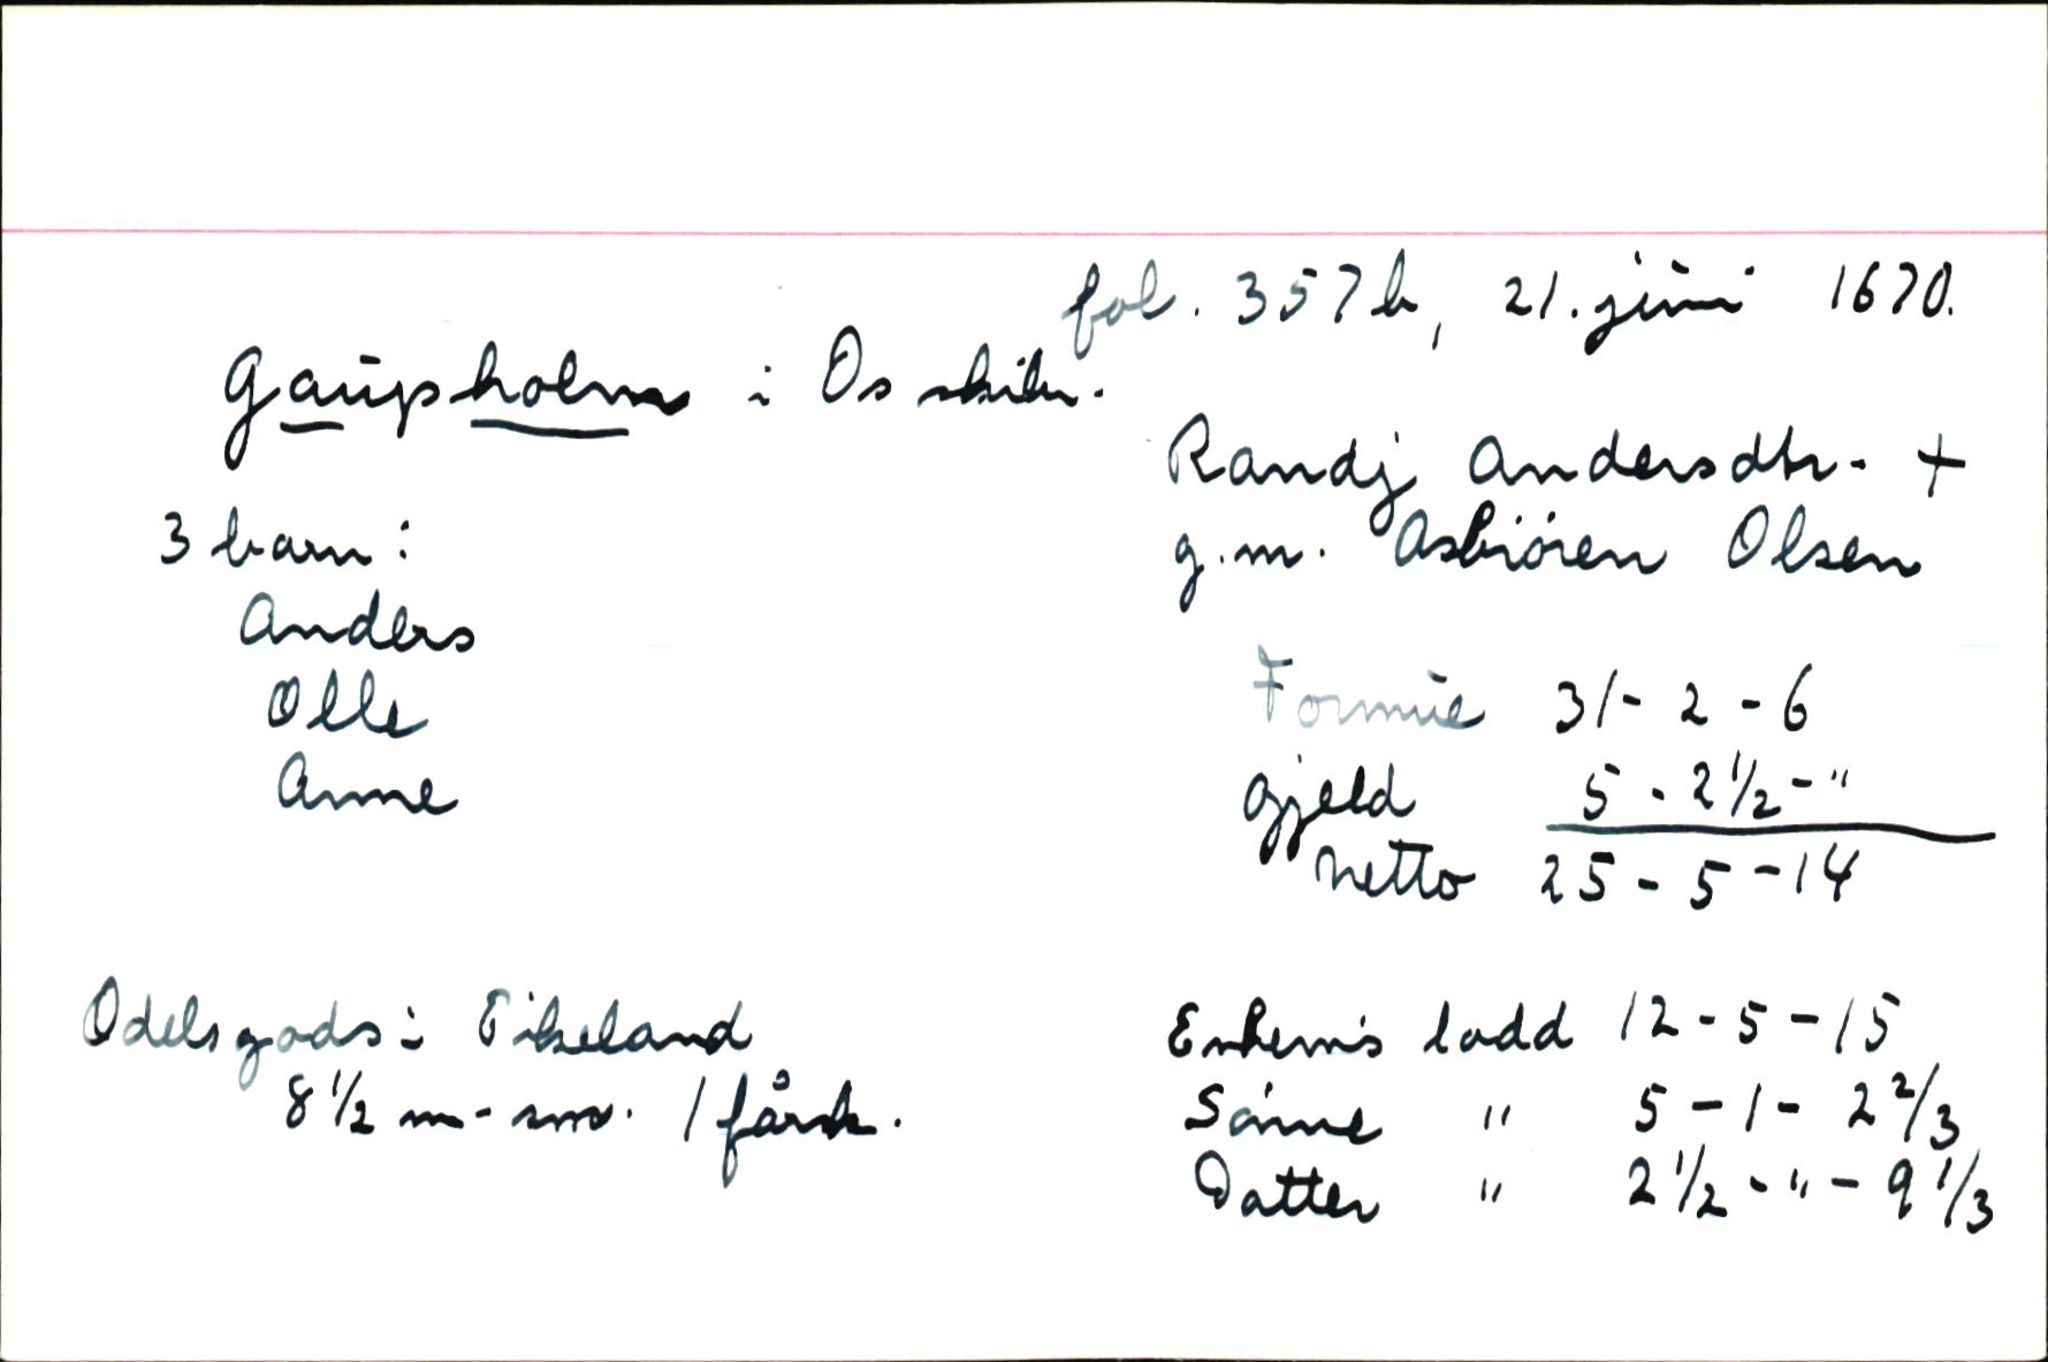 fol. 357 b, 21. juni 1670.
Gaupsholm i Os skibr.
Randj Andersdtr. +
g.m. Asbiören Olsen
3 barn:
Anders
Olle
Anne
Formue 31 - 2 - 6
Gjeld 5 - 2 1/2 - "
Netto 25 - 5 - 14
Odelsgods i Eikeland
8 1/2 m-sm. 1 fårsk.
Enkem's lodd 12 - 5 - 15
Sönne " 5 - 1 - 2 2/3
Datter " 2 1/2 - " - 9 1/3